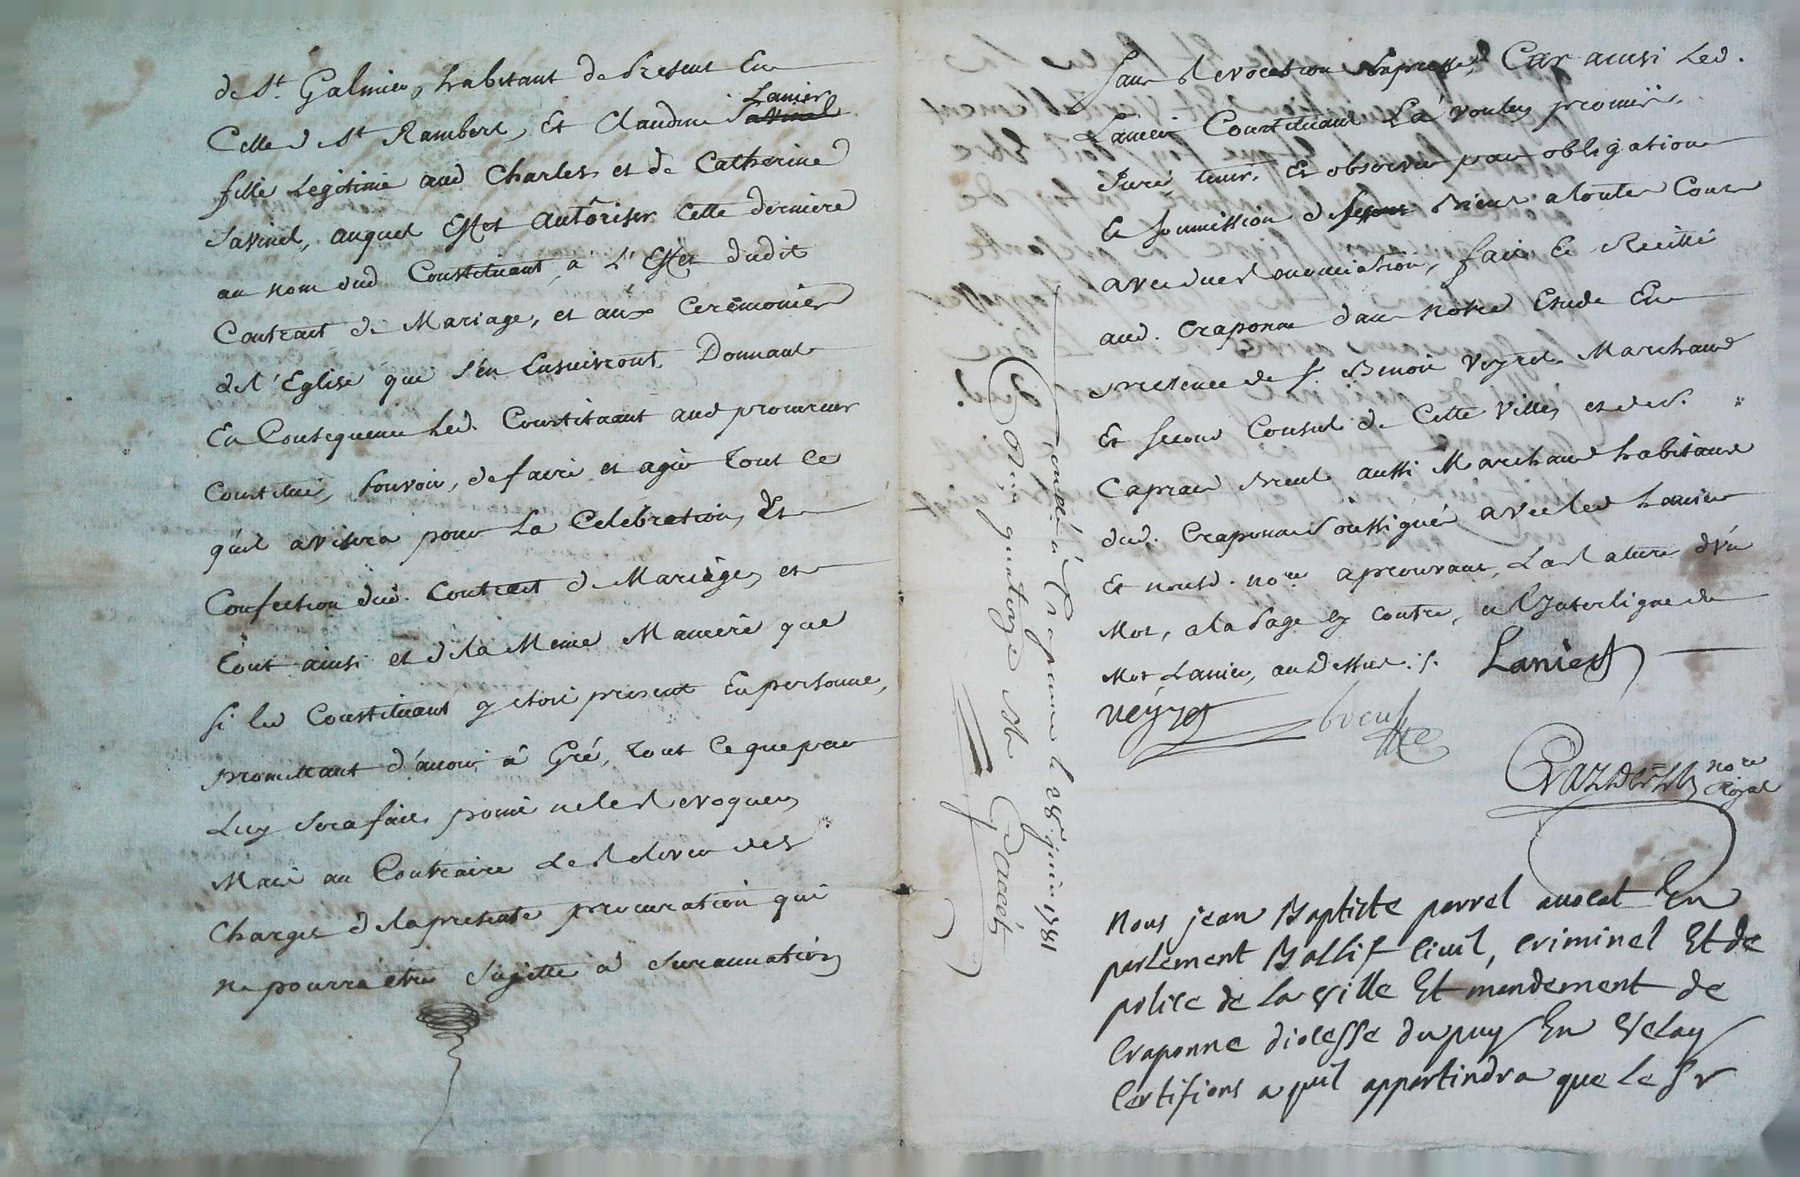 de St. Galmier, habitant de Present En
Celle de St Rambert, Et Claudine Savinel Lanier
fille Legitime aud Charles et de Catherine
Savinel, auquel Effet autôriser Cette derniere
au nom dud Constituant, a L'Effet dudit
Contract de Mariage, et aux Ceremonies
de l'Eglise qui s'en Ensuivront, Donnant
En Consequence Led. Constituant aud procureur
Constitué, Pouvoir, de faire et agir tout Ce
quil avisera pour La Celebration, Et
Confection dud. Contract de Mariage, et
tout ainsi et de la Meme Maniere que
si led Constituant y etoit present En personne,
promettant d'avoir à Gré, tout Ce que par
Luy Sera fait, point ne le Revoquer,
Mais au Contraire Le Relever des
Charges de la presente procuration qui
ne pourra etre Sujette à Surannation
Controllé à Craponne le 28e juin 1781
Reçu quatorze sols
Sans Revocation Expresse, Car ainsi Led.
Lanier Constituant L'a voulu, promis,
Juré, tenir, Et observer par obligation
Et soumission de Ses Biens a toutes Cours
avec due Renonciation, fait Et Recitté
aud. Craponne dans notre Etude En
presence de Sr. Benoit Veyret Marchand
Et second Consul de Cette Ville, et de Sr.
Caprais Breul aussi Marchand habitant
dud. Craponne Soussignés avec led Lanier
Et nousd. nore approuvant, La Rature d'un
Mot, a la Page cy Contre, et l'Interligne du
Mot Lanier, au Dessus. /.
Lanier
Veyret
breul
nore Royal
Nous jean Baptiste porrel avocat En
parlement Baillif Civil, Criminel Et de
police de La ville Et mandement de
Craponne diocesse du puy En Velay
Certifions a quil appartindra que Le Sr